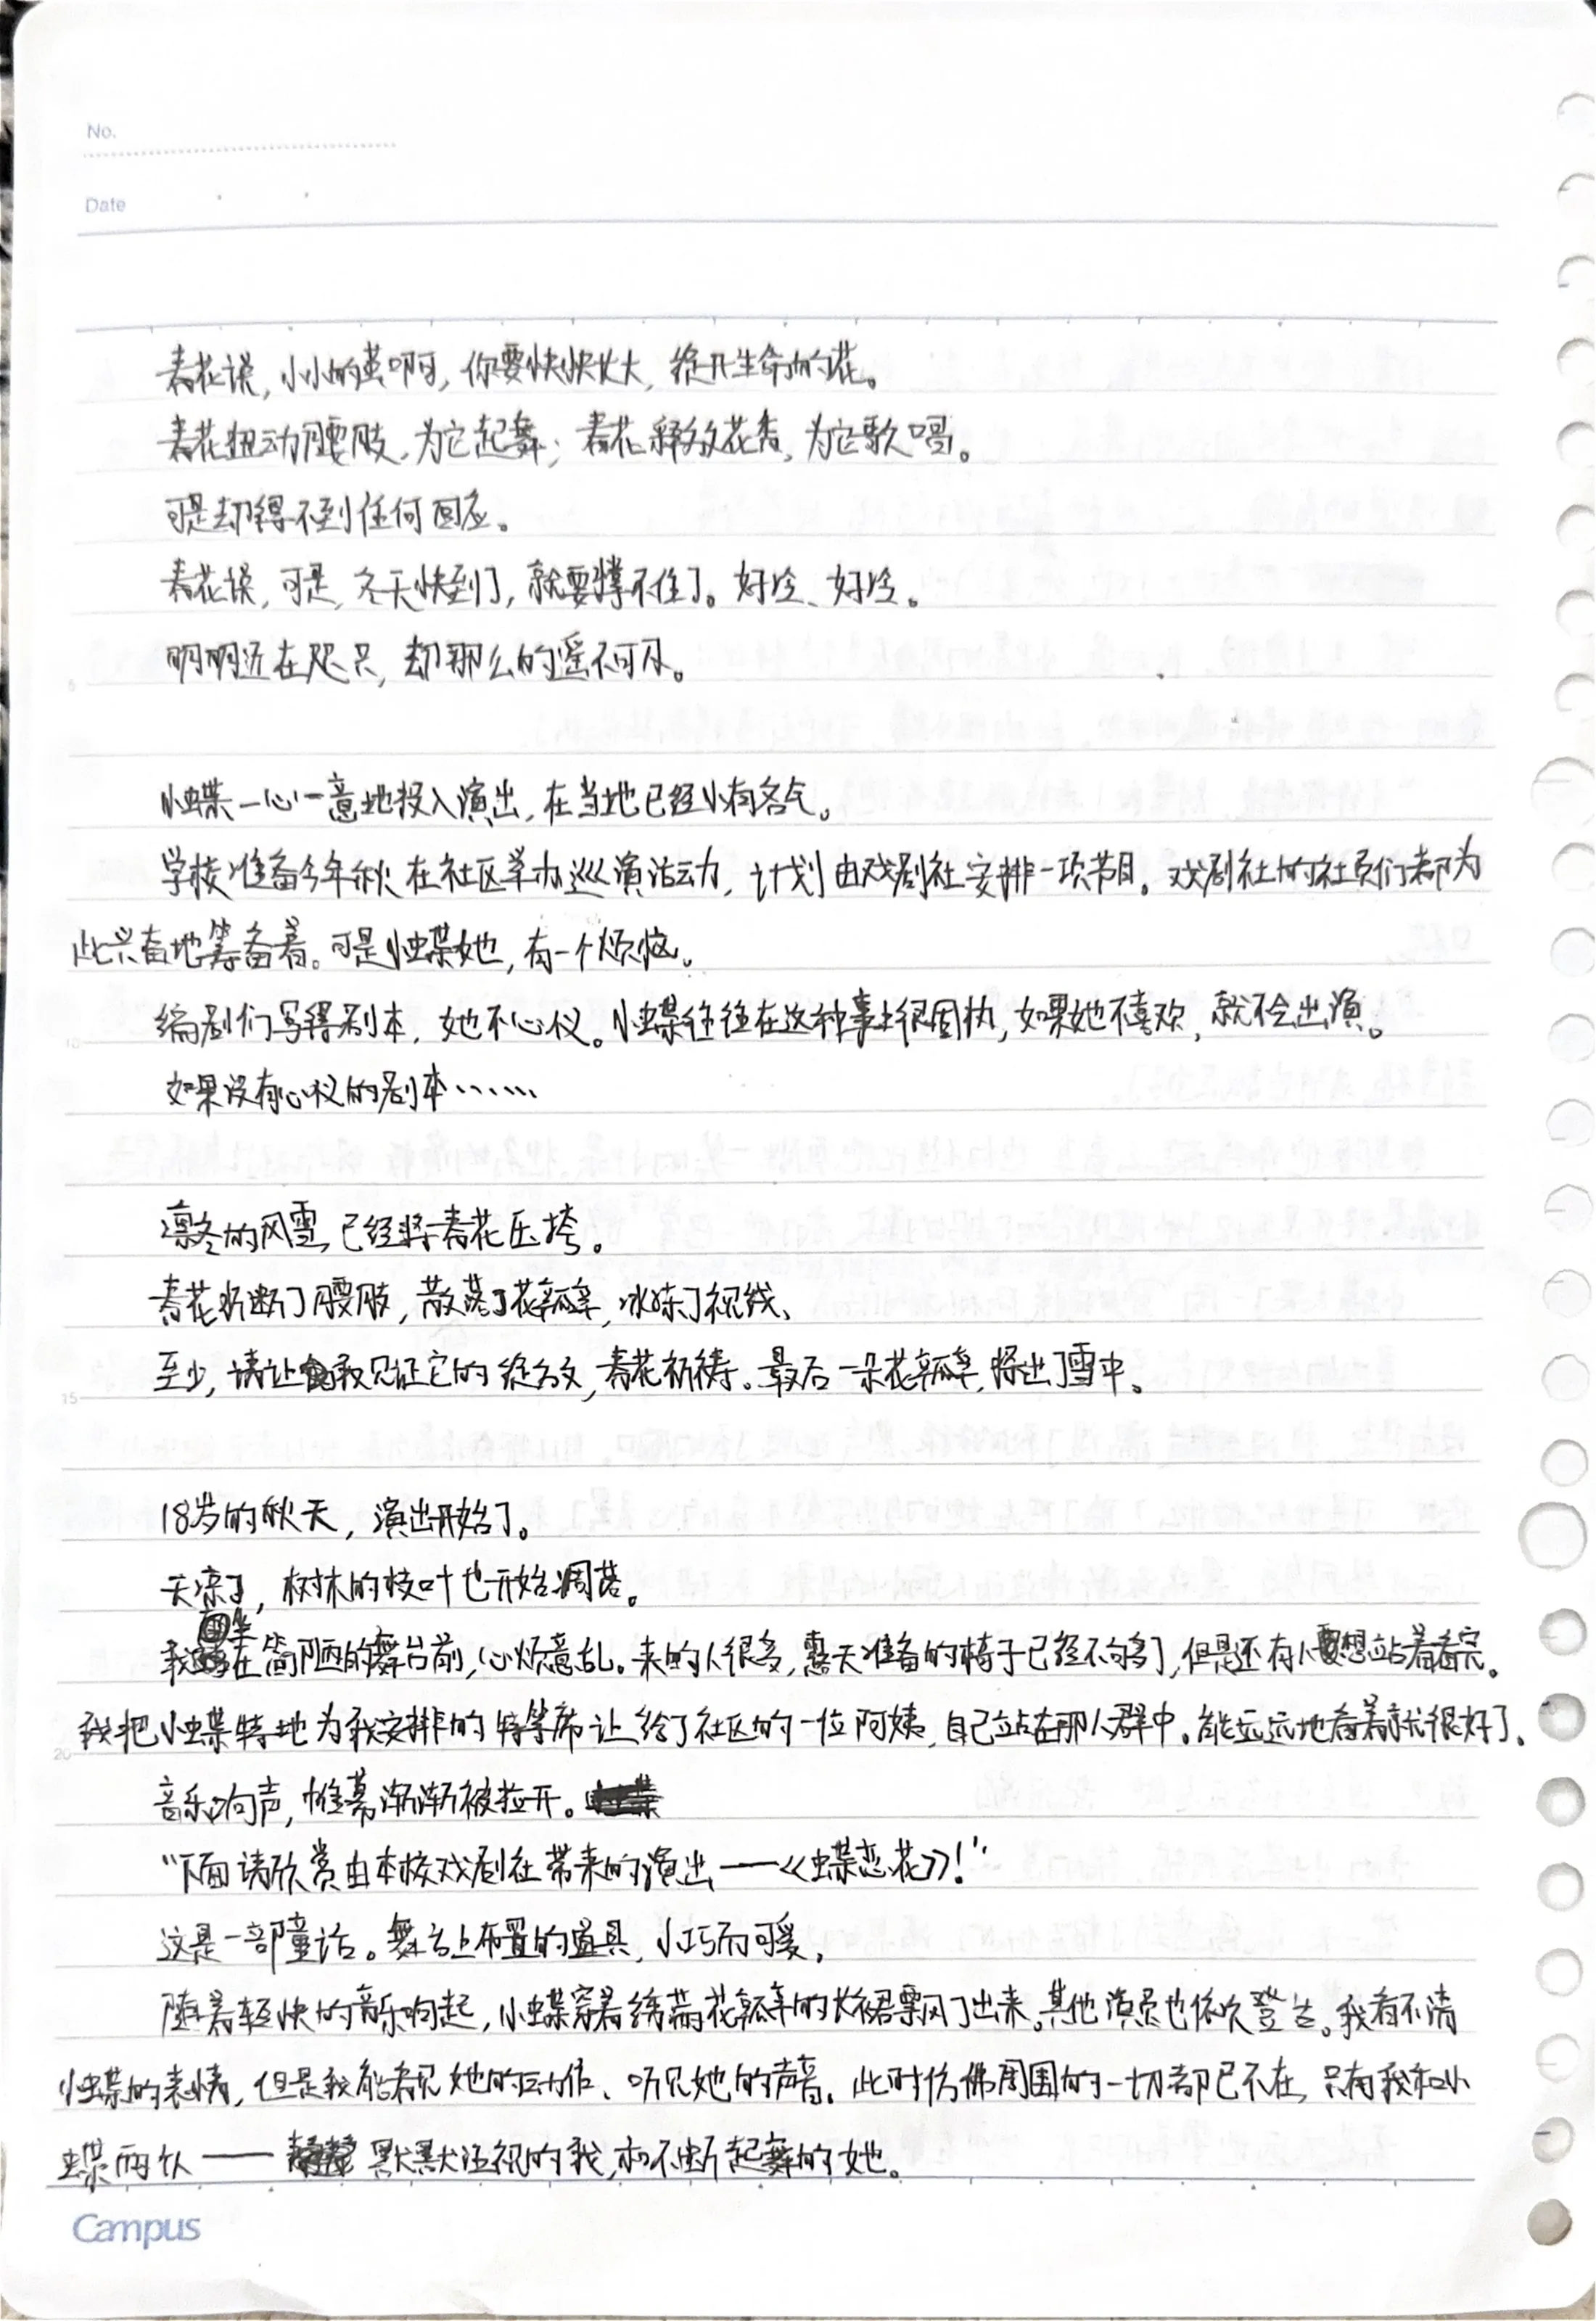 No.
Date
春花说，小小的茧啊，你要快快长大，绽开生命的花。
春花扭动腰肢，为它起舞；春花释放花香，为它歌唱。
可是却得不到任何回应。
春花说，可是，冬天快到了，就要撑不住了。好冷、好冷。
明明近在咫尺，却那么的遥不可及。
小蝶一心一意地投入演出，在当地已经小有名气。
学校准备今年秋在社区举办巡演活动，计划由戏剧社安排一项节目。戏剧社的社员们都为
此兴奋地筹备着。可是小蝶她，有一个烦恼。
编剧们写得剧本，她不心仪。小蝶往往在这种事上很固执，如果她不喜欢，就不会出演。
如果没有心仪的剧本……
凛冬的风雪，已经将春花压垮。
春花折断了腰肢，散落了花瓣，冰冻了视线、
至少，请让我见证它的绽放，春花祈祷。最后一朵花瓣，探出了雪中。
18岁的秋天，演出开始了。
天凉了，树林的枝叶也开始凋落。
我坐在简陋的舞台前，心烦意乱。来的人很多，露天准备的椅子已经不够了，但是还有人想站着看完。
我把小蝶特地为我安排的特等席让给了社区的一位阿姨，自己站在那人群中。能远远地看着就很好了。
音乐响声，帷幕渐渐被拉开。
“下面请欣赏由本校戏剧社带来的演出——《蝶恋花》！”
这是一部童话。舞台上布置的道具，小巧而可爱。
随着轻快的音乐响起，小蝶穿着绣满花瓣的长裙飘了出来。其他演员也依次登台。我看不清
小蝶的表情，但是我能看见她的动作、听见她的声音。此时仿佛周围的一切都已不在，只有我和小
蝶两人——默默注视的我，和不断起舞的她。
Campus